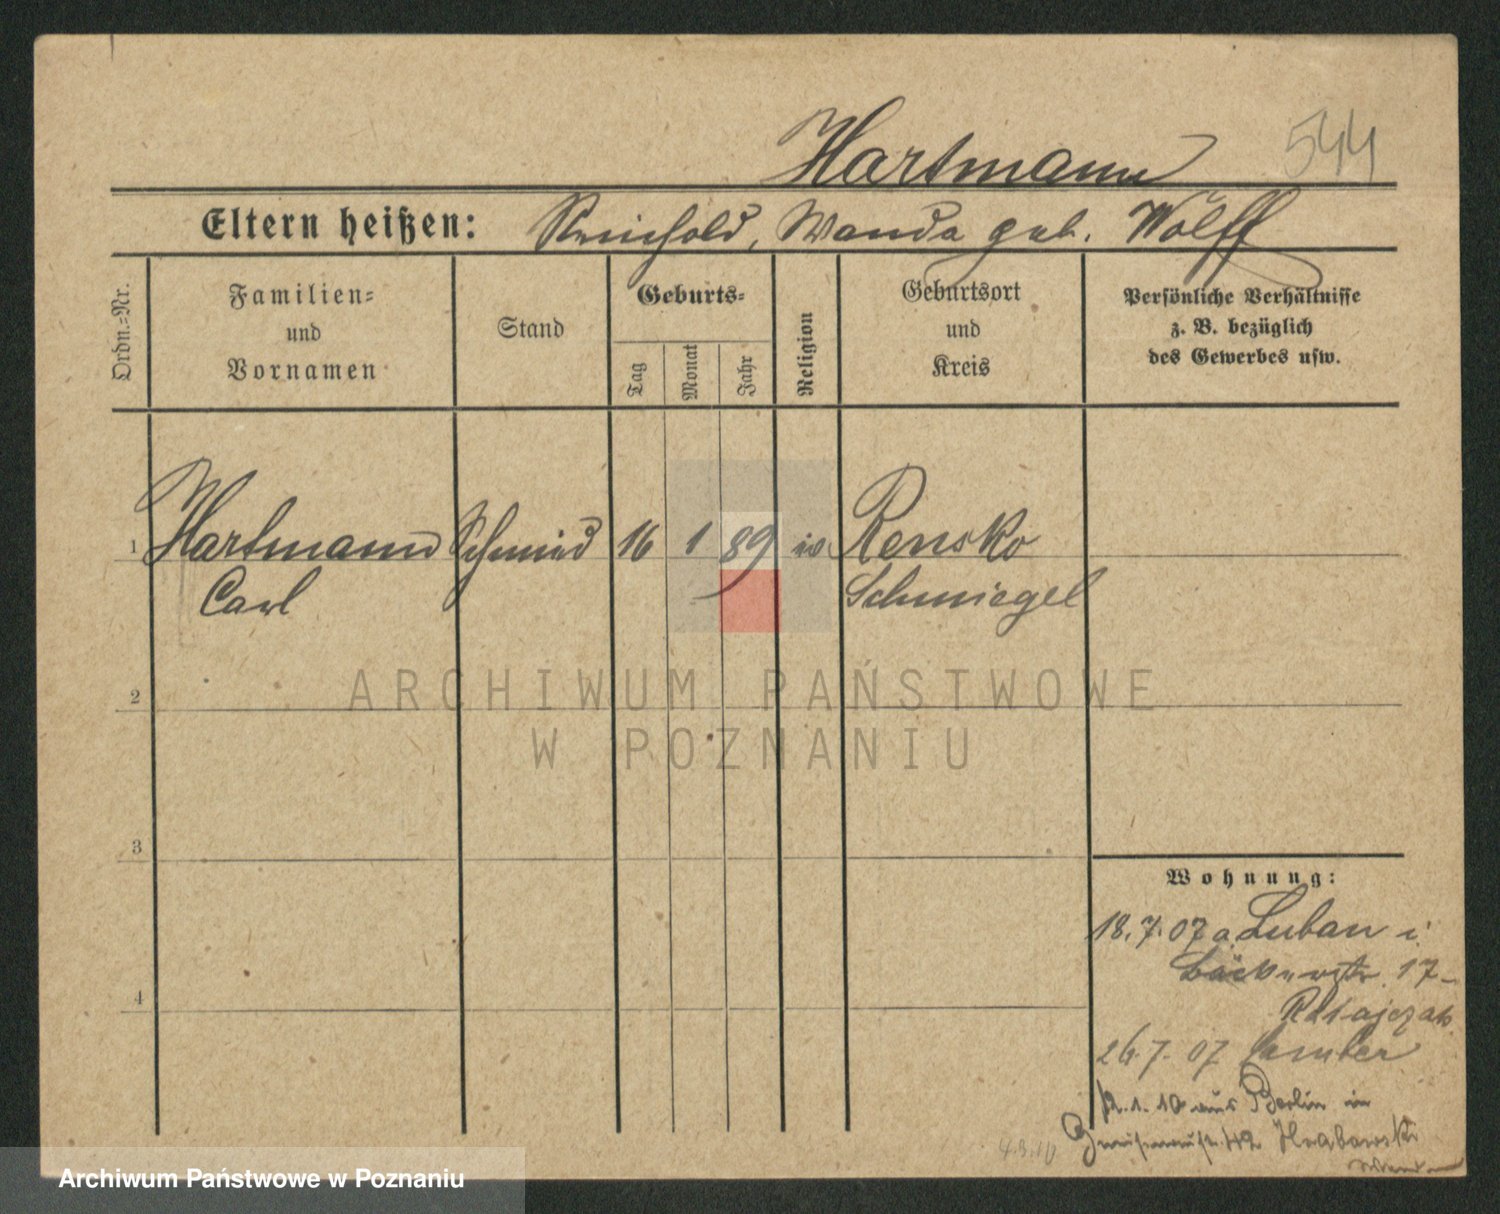 Hartmann 544
Eltern heißen: Reinhold, Wanda geb. Wolff
Ordn.-Nr.
Familien-
und
Vornamen
Stand
Geburts-
Tag
Monat
Jahr
Religion
Geburtsort
und
Kreis
Persönliche Verhältnisse
z. B. bezüglich
des Gewerbes usw.
1 Hartmann Schmied 16 1 89 Rensko
Carl Schmiegel
2
3
4
Wohnung:
18.7.07 a. Luban i
Bäckerstr. 17
Ratajczak
26.7.07
12.1.10 aus Berlin in
Gneisenaustr. 42 Hrabowski
4.3.10
ARCHIWUM PAŃSTWOWE
W POZNANIU
Archiwum Państwowe w Poznaniu